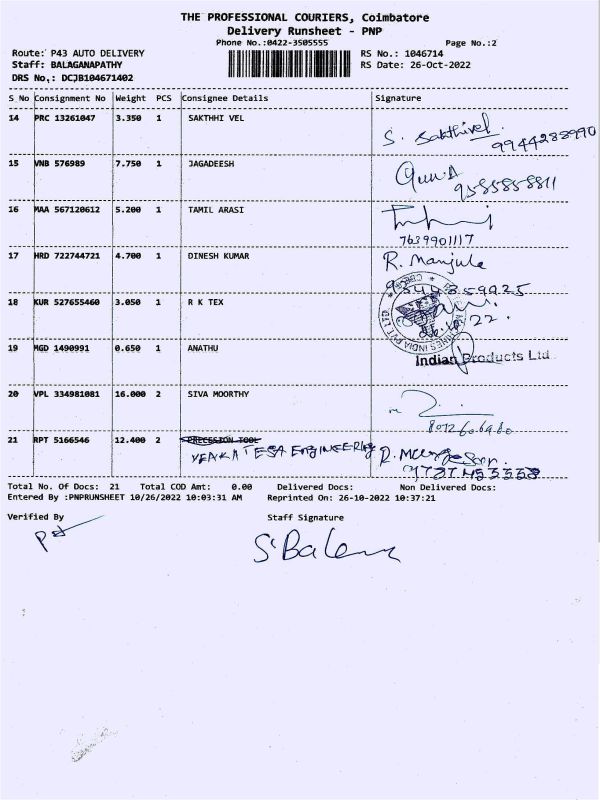 THE PROFESSIONAL COURIERS, Coimbatore
Delivery Runsheet - PNP
Phone No.:0422-3505555 Page No.:2
Route: P43 AUTO DELIVERY RS No.: 1046714
Staff: BALAGANAPATHY RS Date: 26-Oct-2022
DRS No,: DCJB104671402
S_No Consignment No Weight PCS Consignee Details Signature
14 PRC 13261047 3.350 1 SAKTHHI VEL S. Sakthivel
9944288990
15 VNB 576989 7.750 1 JAGADEESH
9585858811
16 MAA 567120612 5.200 1 TAMIL ARASI
7639901117
17 HRD 722744721 4.700 1 DINESH KUMAR R. Manjula
9344359925
18 KUR 527655460 3.050 1 R K TEX
26.10.22.
19 MGD 1490991 0.650 1 ANATHU
Indian Products Ltd
20 VPL 334981081 16.000 2 SIVA MOORTHY
21 RPT 5166546 12.400 2 PRECESSION TOOL
ENGINEERING
Total No. Of Docs: 21 Total COD Amt: 0.00 Delivered Docs: Non Delivered Docs:
Entered By :PNPRUNSHEET 10/26/2022 10:03:31 AM Reprinted On: 26-10-2022 10:37:21
Verified By Staff Signature
S'Balem